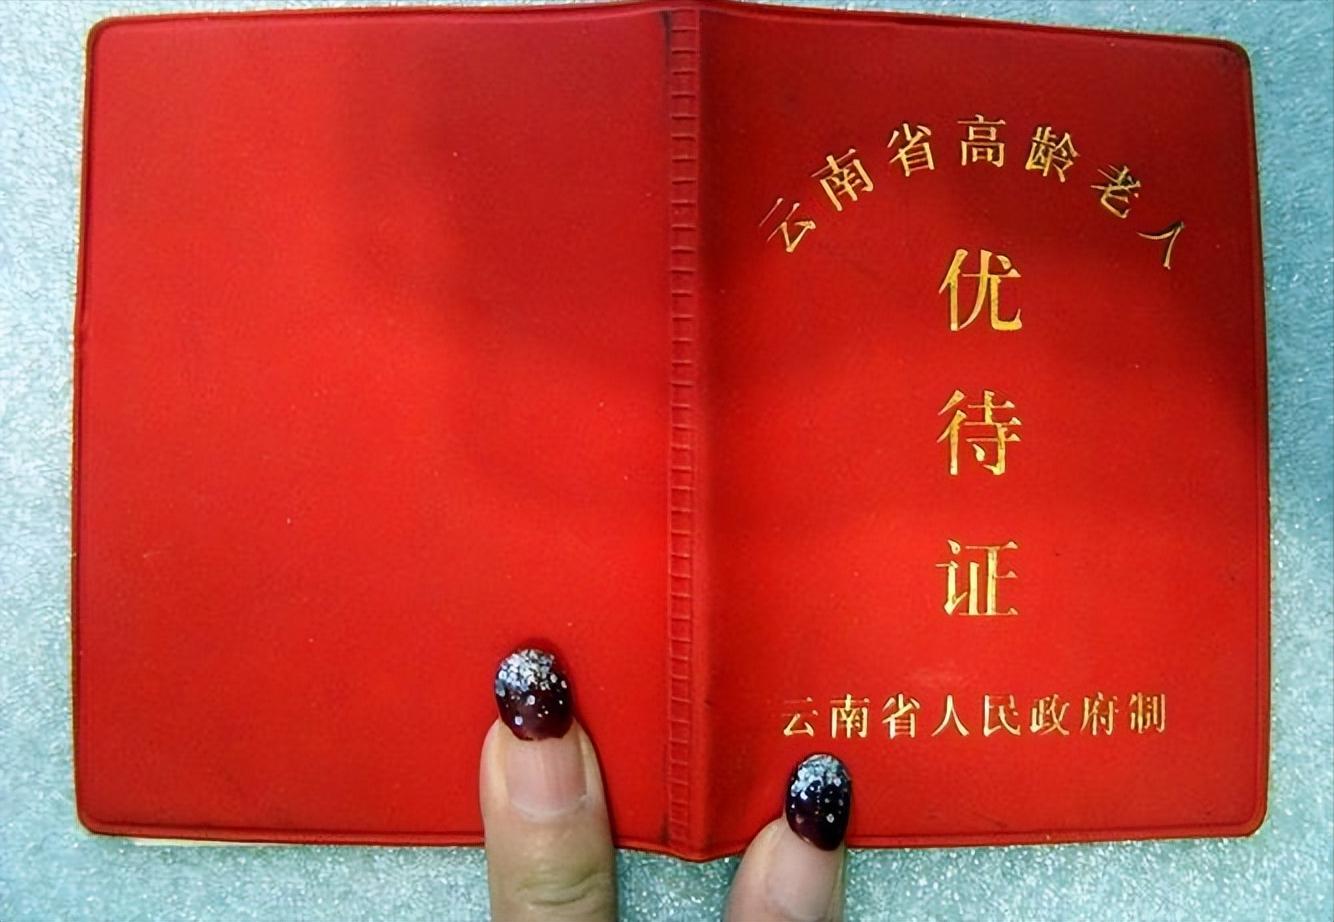 云南省高龄老人
优待证
云南省人民政府制